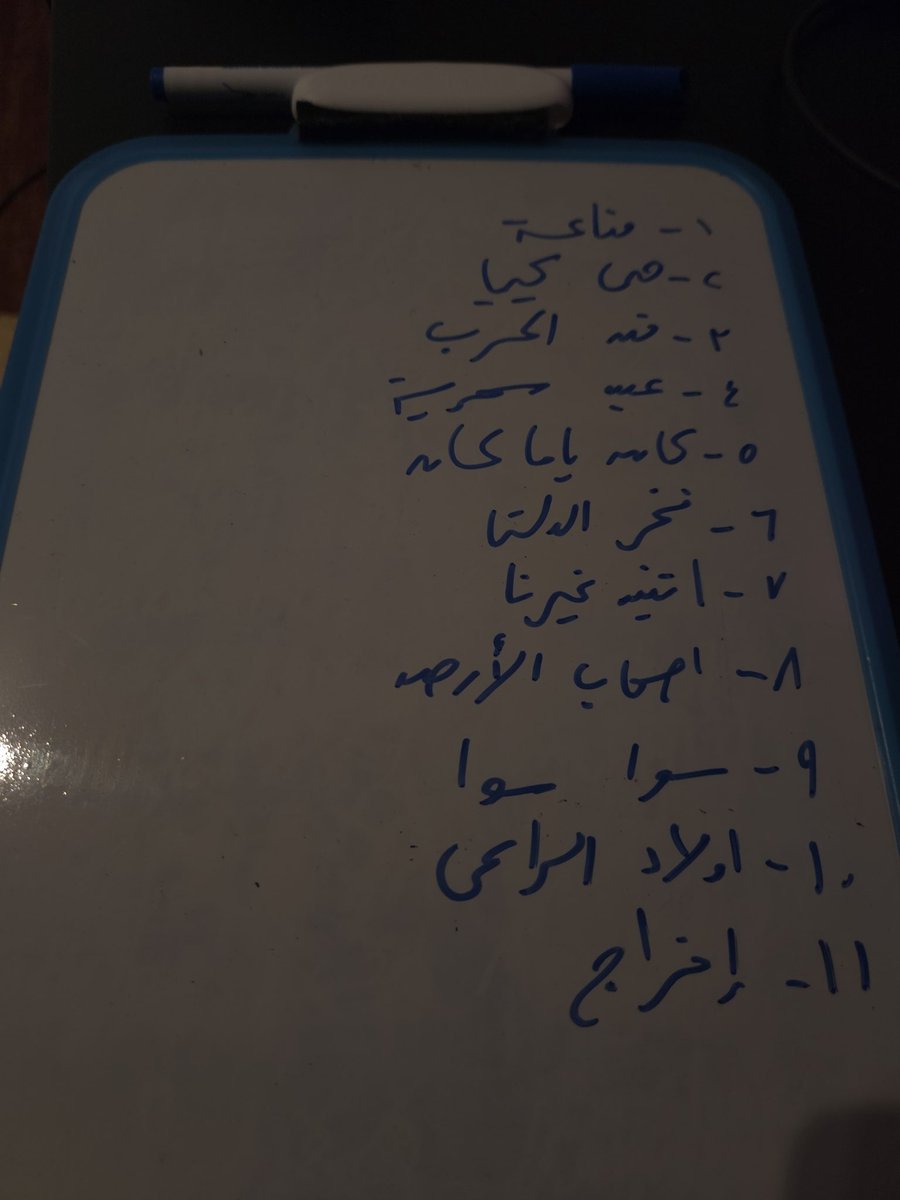 ١- مناعة
٢- حى يحيا
٣- فن الحرب
٤- عين سحرية
٥- كان ياما كان
٦- فخر الدلتا
٧- اتنين غيرنا
٨- اصحاب الأرض
٩- سوا سوا
١٠- اولاد الراعى
١١- إفراج